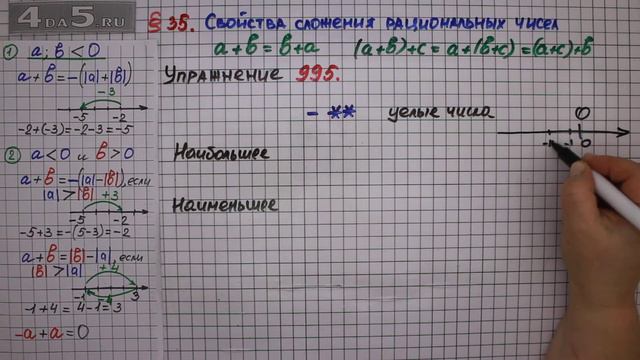 4DA5.RU
§ 35. Свойства сложения рациональных чисел
a+b=b+a (a+b)+c=a+(b+c)=(a+c)+b
Упражнение 995.
- ** целые числа
0
-1 0
Наибольшее
Наименьшее
1) a; b < 0
a+b=-(|a|+|b|)
-3
-5 -2
-2+(-3)=-2-3=-5
2) a<0 и b>0
a+b=-(|a|-|b|), если
|a|>|b| +3
-5 -2
-5+3=-(5-3)=-2
a+b=|b|-|a|, если
|b|>|a| +4
-1 3
-1+4=4-1=3
-a+a=0